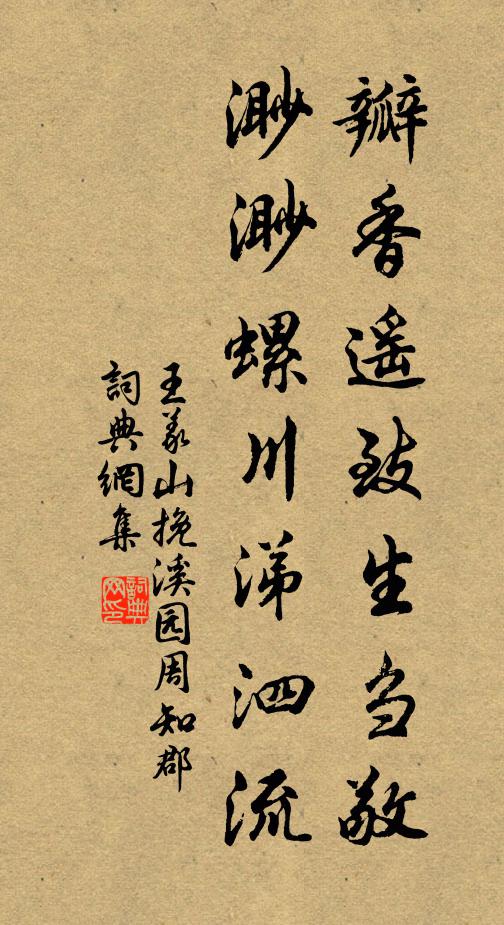 瓣香遥致生刍敬
渺渺螺川涕泗流
王義山挽溪园周知郡
詞典網集
詞典网印